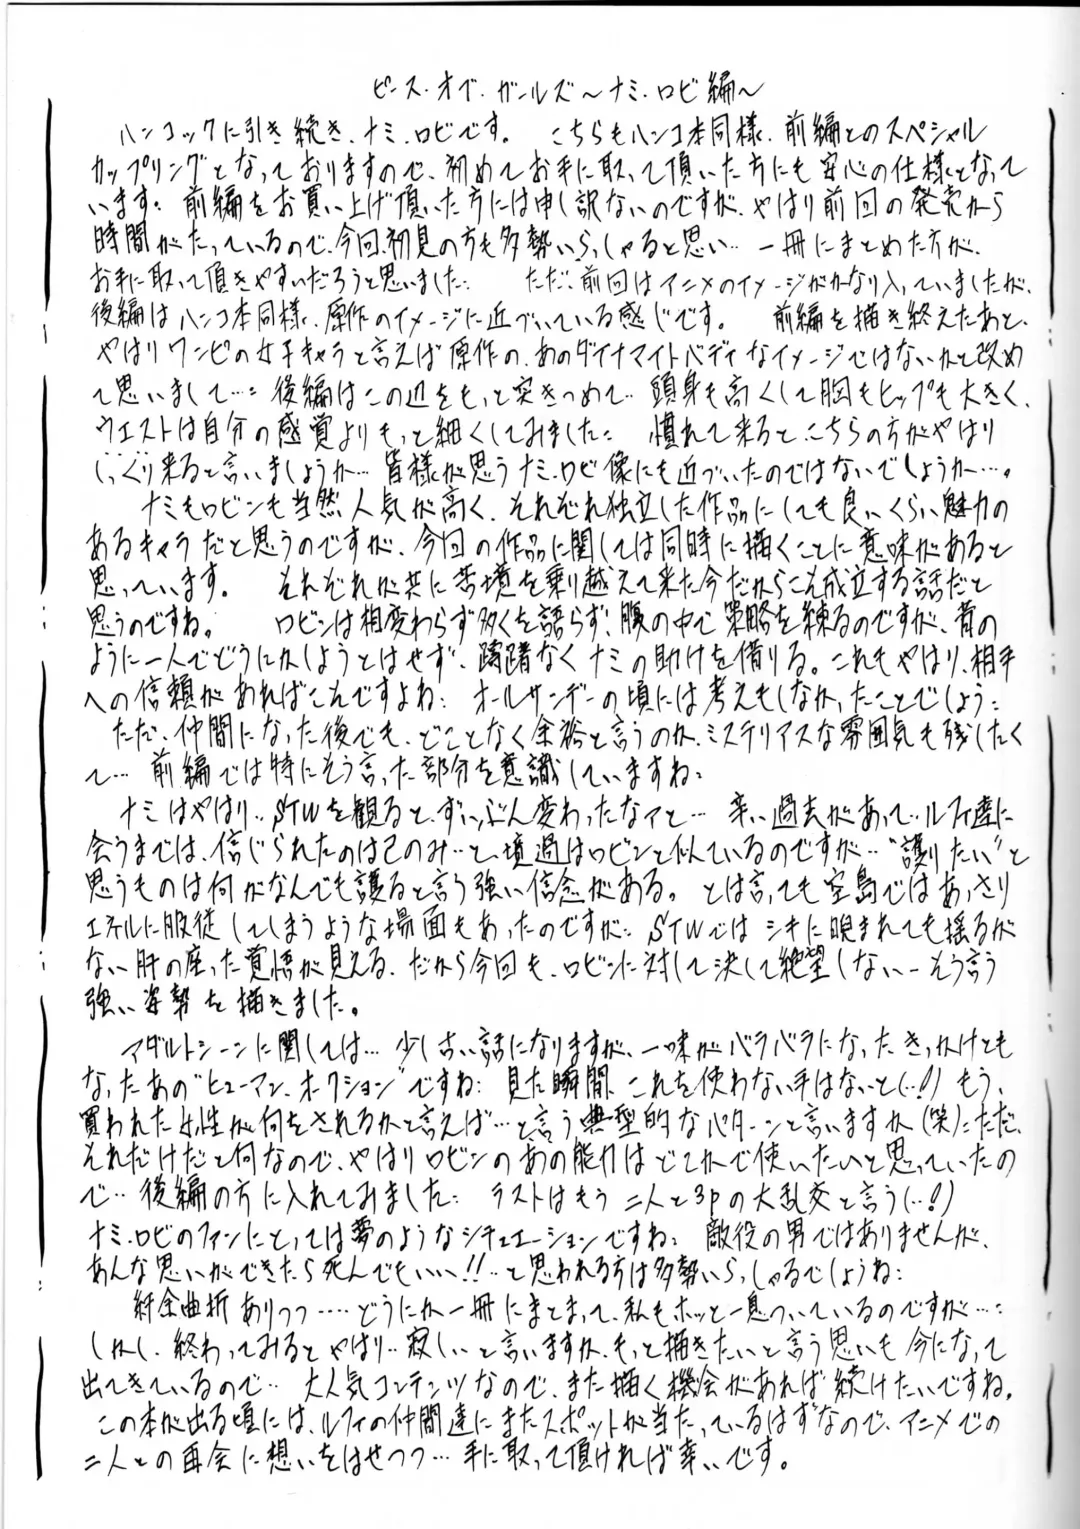 ピース・オブ・ガールズ～ナミ・ロビ編～
ハンコックに引き続き、ナミ・ロビです。 こちらもハンコ本同様、前編とのスペシャル
カップリングとなっておりますので、初めてお手に取って頂いた方にも安心の仕様となって
います。前編をお買い上げ頂いた方には申し訳ないのですが、やはり前回の発売から
時間がたっているので、今回、初見の方も多勢いらっしゃると思い… 一冊にまとめた方が、
お手に取って頂きやすいだろうと思いました… ただ、前回はアニメのイメージがかなり入っていましたが、
後編はハンコ本同様、原作のイメージに近づいている感じです。 前編を描き終えたあと、
やはりワンピの女子キャラと言えば原作の、あのダイナマイトバディなイメージではないかと改め
て思いまして…：後編はこの辺をもっと突きつめて‥頭身も高くして胸もヒップも大きく、
ウエストは自分の感覚よりもっと細くしてみました： 慣れて来ると、こちらの方がやはり
しっくり来ると言いましょうか…皆様が思うナミ・ロビ像にも近づいたのではないでしょうか…。
ナミもロビンも当然人気が高く、それぞれ独立した作品にしても良いくらい魅力の
あるキャラだと思うのですが、今回の作品に関しては同時に描くことに意味があると
思っています。 それぞれが共に苦境を乗り越えて来た今だからこそ成立する話だと
思うのですね。 ロビンは相変わらず多くを語らず、腹の中で策略を練るのですが、昔の
ように一人でどうにかしようとはせず、躊躇なくナミの助けを借りる。これもやはり、相手
への信頼があればこそですよね： オールサンデーの頃には考えもしなかったことでしょう：
ただ、仲間になった後でも、どことなく余裕と言うのか、ミステリアスな雰囲気も残したく
て… 前編では特にそう言った部分を意識していますね：
ナミはやはり‥STWを観ると、ずいぶん変わったなァと… 辛い過去があって‥ルフィ達に
会うまでは、信じられたのは己のみ‥と、境遇はロビンと似ているのですが‥“護りたい”と
思うものは何がなんでも護ると言う強い信念がある。とは言っても空島ではあっさり
エネルに服従してしまうような場面もあったのですが：STWではシキに睨まれても揺るが
ない肝の座った覚悟が見える、だから今回も、ロビンに対して決して絶望しない－そう言う
強い姿勢を描きました。
アダルトシーンに関しては… 少し古い話になりますが、一味がバラバラになったきっかけとも
なったあの“ヒューマン・オークション”ですね：見た瞬間、これを使わない手はないと(…!)もう、
買われた女性が何をされるかと言えば…と言う典型的なパターンと言いますか(笑)：ただ、
それだけだと何なので、やはりロビンのあの能力はどこかで使いたいと思っていたの
で‥後編の方に入れてみました： ラストはもう二人と3Pの大乱交と言う(…!)
ナミ・ロビのファンにとっては夢のようなシチュエーションですね： 敵役の男ではありませんが、
あんな思いができたら死んでもいい!!‥と思われる方は多勢いらっしゃるでしょうね：
紆余曲折ありつつ‥‥どうにか一冊にまとまって、私もホッと一息ついているのですが…：
しかし、終わってみるとやはり‥寂しいと言いますか、もっと描きたいと言う思いも今になって
出てきているので‥ 大人気コンテンツなので、また描く機会があれば続けたいですね。
この本が出る頃には、ルフィの仲間達にまたスポットが当たっているはずなので、アニメでの
二人との再会に想いをはせつつ…手に取って頂ければ幸いです。